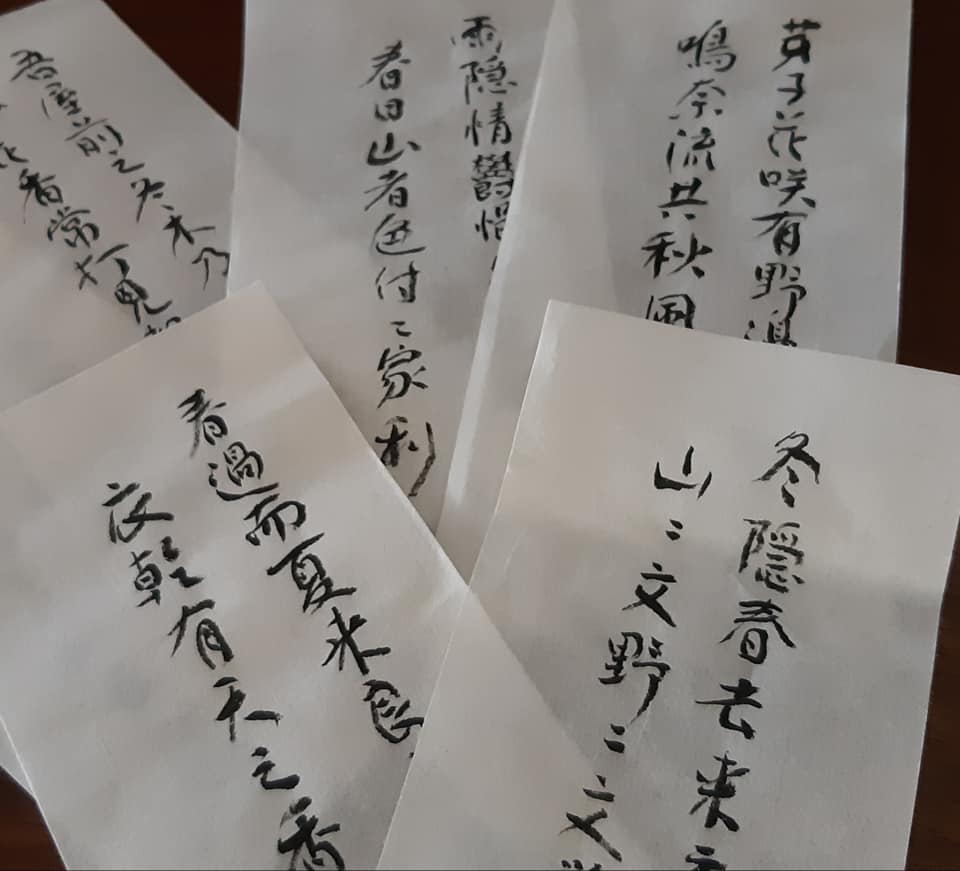 芽子花咲有野邊
鳴奈流共秋風
雨隠情鬱悒
春日山者色付二家利
吾屋前之冬木乃
花香常打見
冬隠春去来
山二文野二文
春過而夏来良
衣乾有天之香